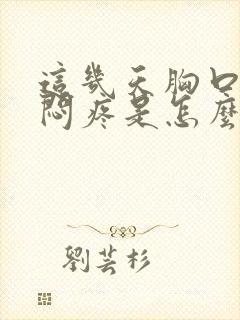 這幾天胸口
悶疼是怎麼
劉芸杉